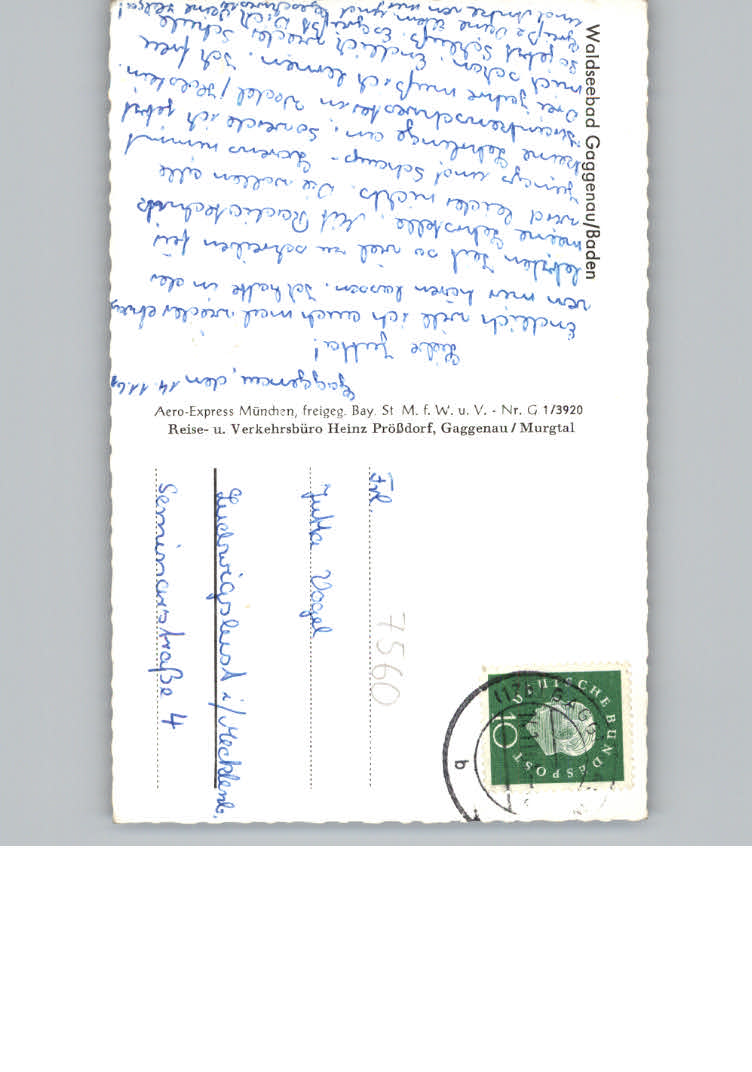 Waldseebad Gaggenau/Baden
Gaggenau, den 14.11.61
Liebe Jutta!
Endlich will ich auch mal wieder etwas
von mir hören lassen. Ich hatte in der
letzten Zeit so viel zu schreiben für
meine Lehrstelle. Mit Radiotechnik
wird leider nichts. Die wollen alle
Jungs und Schaup-Lorenz nimmt
keine Lehrlinge an. So werde ich jetzt
Krankenschwester in Wedel / Holstein.
Drei Jahre muß ich lernen. Ich freu
mich schon. Endlich wieder Schule
So jetzt Schluß. Es grüßt Dich,
Deine Eltern und Geschwister
und von mir
Aero-Express München, freigeg. Bay. St M. f. W. u. V. - Nr. G 1/3920
Reise- u. Verkehrsbüro Heinz Prößdorf, Gaggenau / Murgtal
Frl.
Jutta Vogel
Ludwigslust i/Mecklenb.
Seminarstraße 4
7560
DEUTSCHE BUNDESPOST
10
(17b) GAGG
b